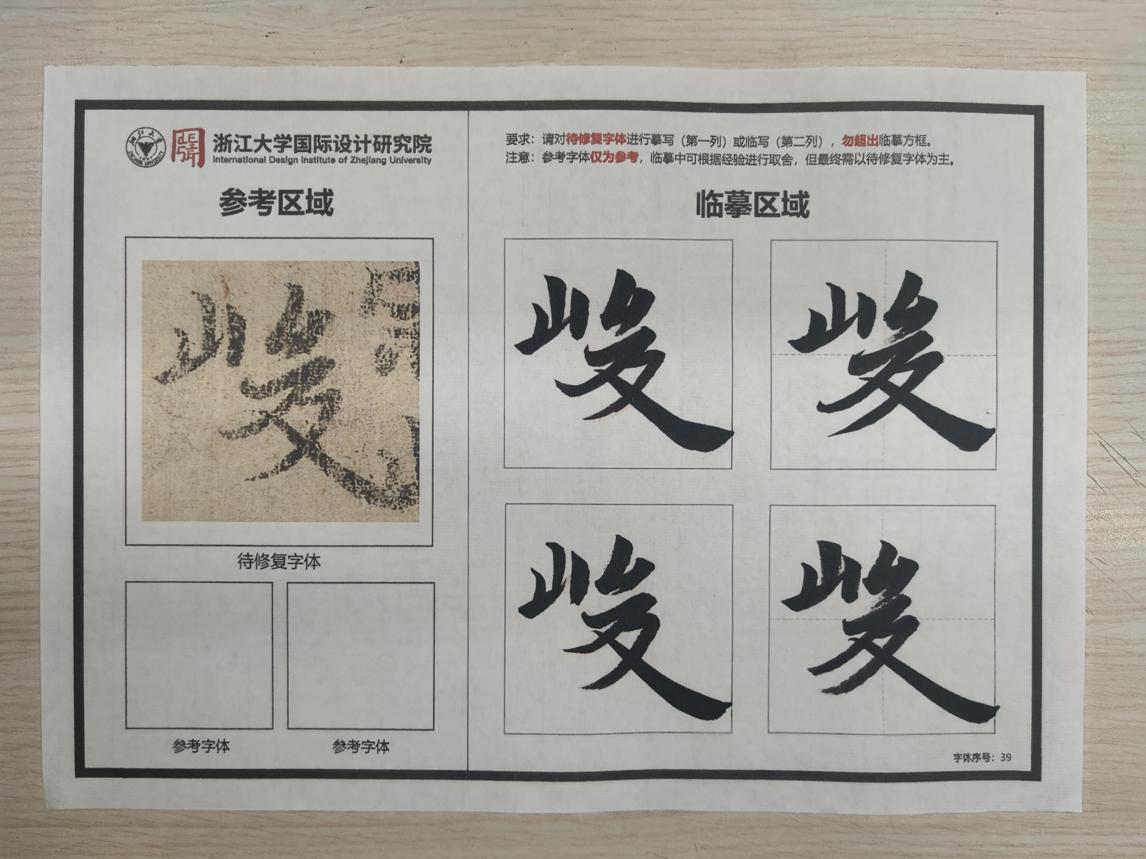 浙江大学国际设计研究院
International Design Institute of Zhejiang University
参考区域
待修复字体
参考字体
参考字体
要求：请对待修复字体进行摹写（第一列）或临写（第二列），勿超出临摹方框。
注意：参考字体仅为参考，临摹中可根据经验进行取舍，但最终需以待修复字体为主。
临摹区域
峻 峻
峻 峻
字体序号：39